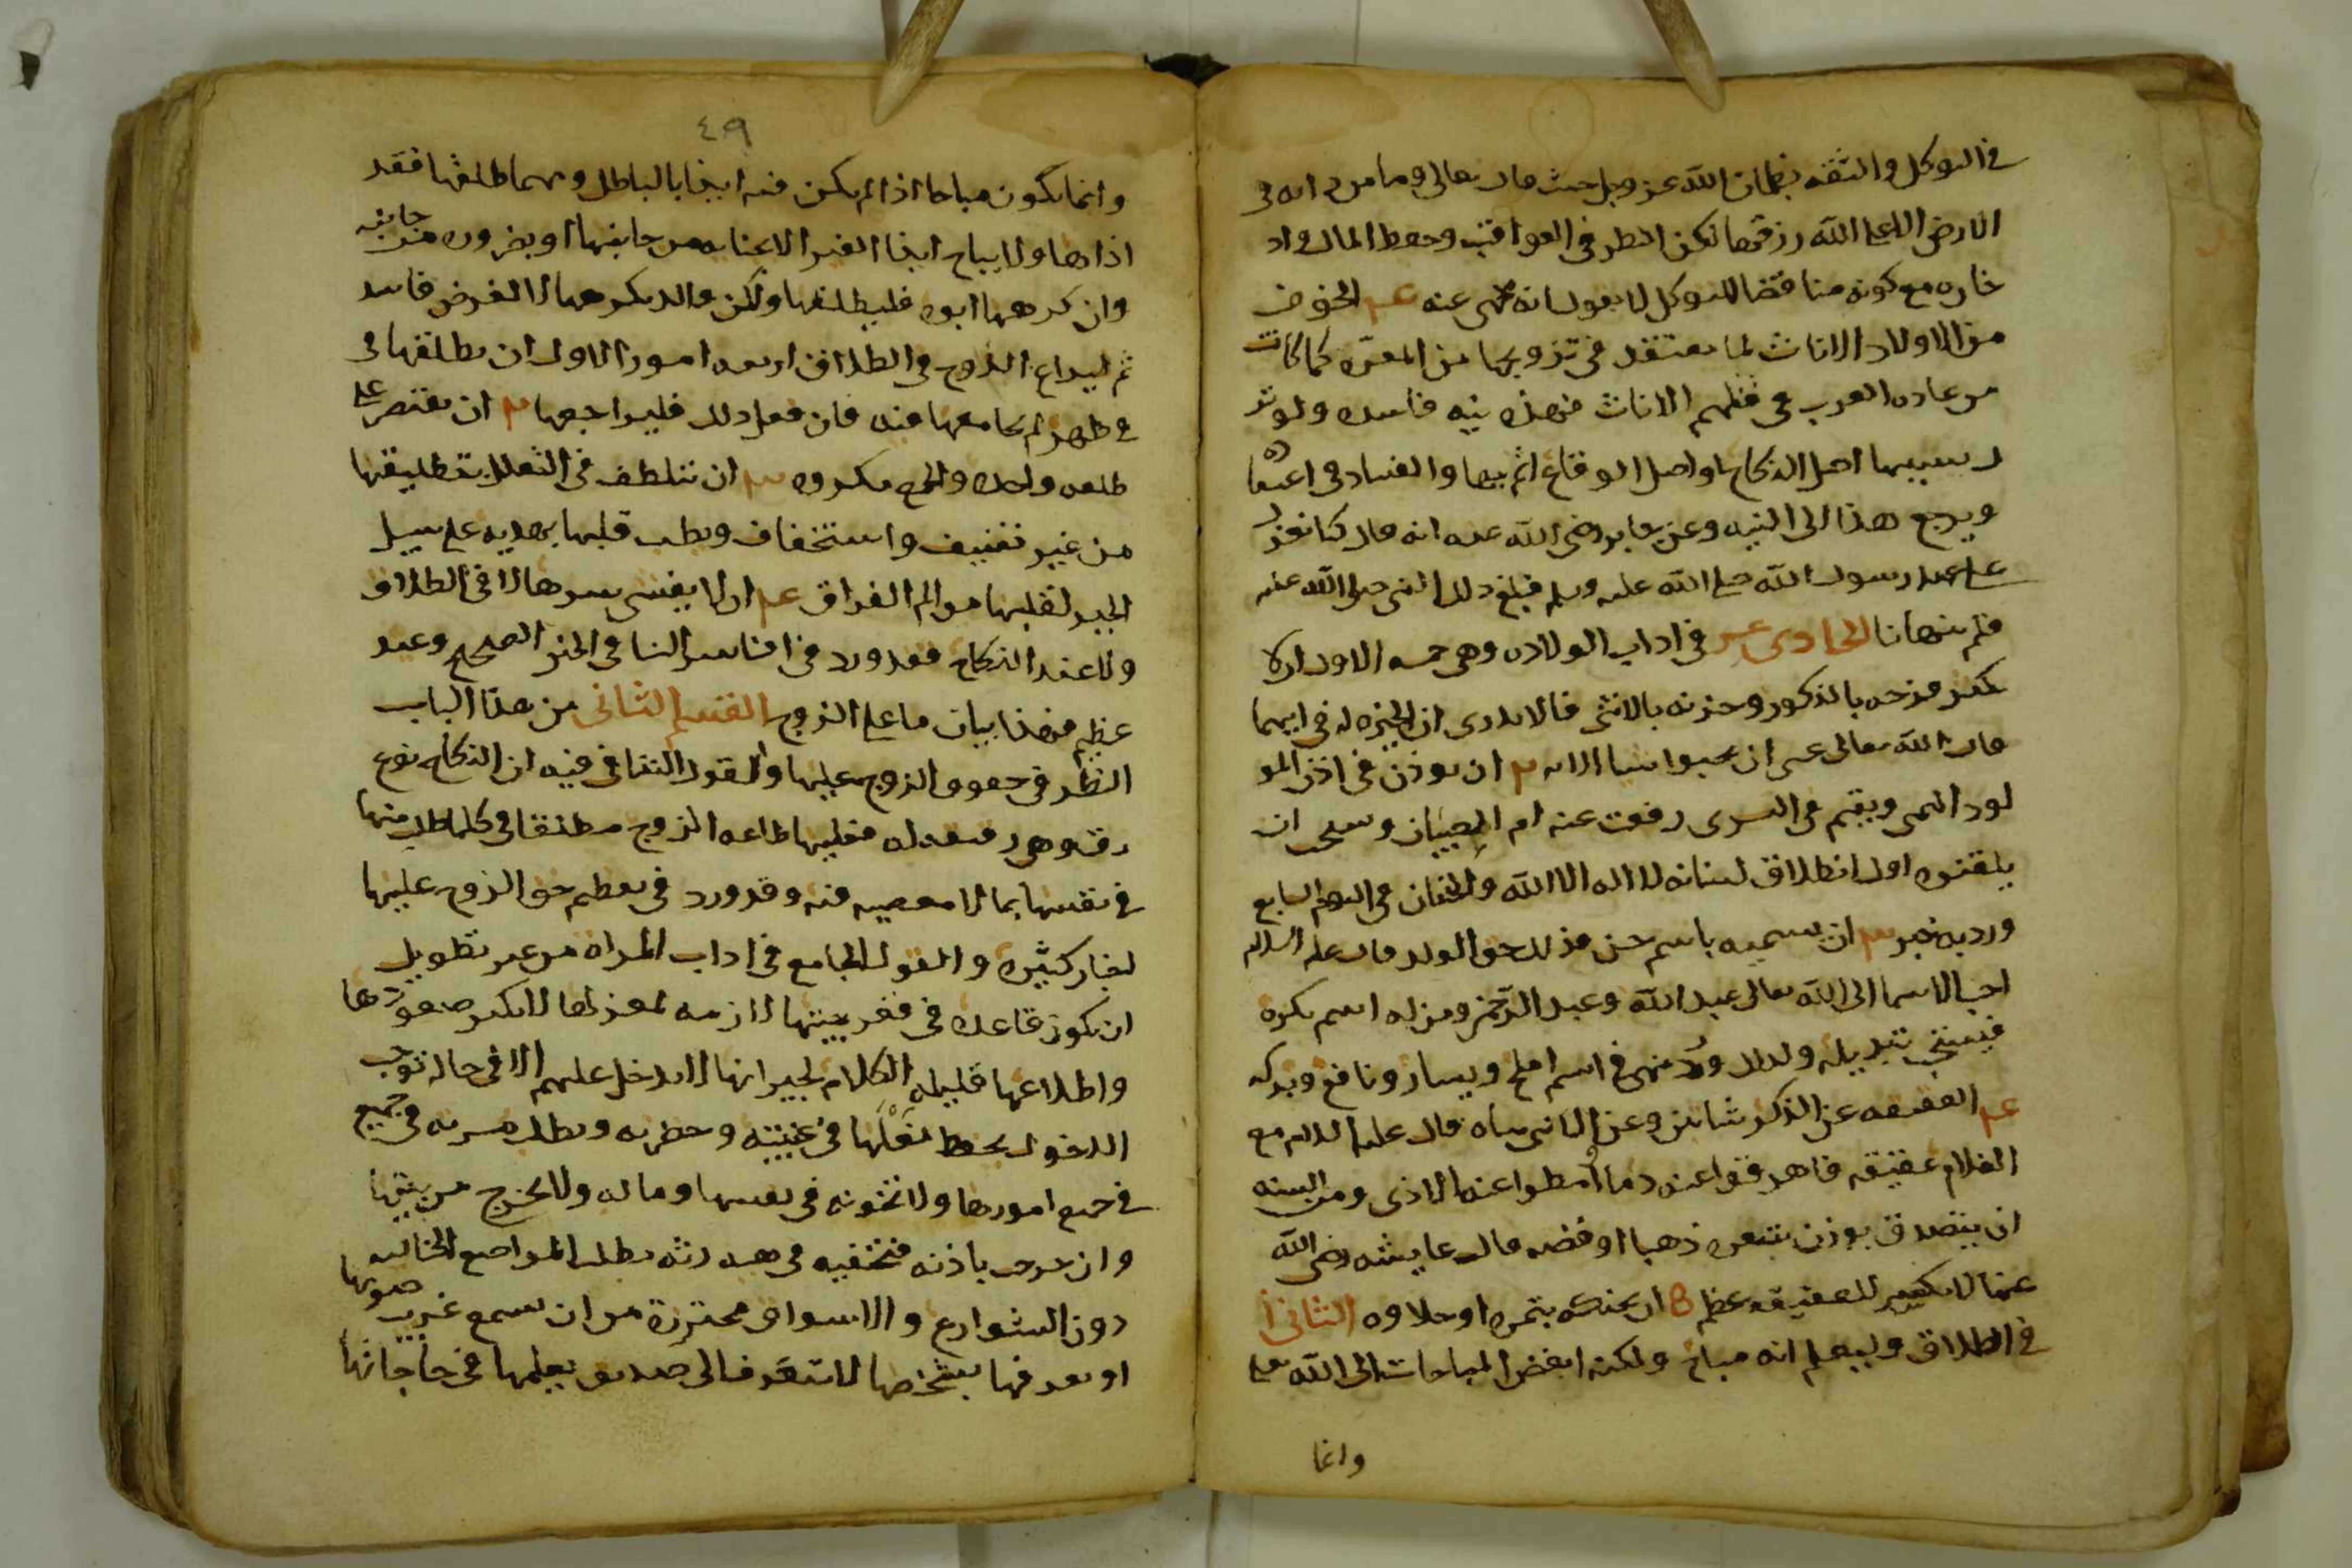 في التوكل والثقه بضمان الله عز وجل حيث قال تعالى وما من دابه في
الارض الا على الله رزقها لكن النظر في العواقب وحفظ المال واد
خاره مع كونه مناقضا للتوكل لا نقول انه نهى عنه عـ الخوف
من الاولاد الاناث لما يعتقد في تزويجها من المعره كما كانت
من عاده العرب في قتلهم الاناث فهذه نيه فاسده ولو تر
ك بسببها اصل النكاح او اصل الوقاع اثم بها والفساد في اعتقا
ويرجع هذا الى النيه وعن جابر رضي الله عنه انه قال كنا نعزل
على عهد رسول الله صلى الله عليه وسلم فبلغ ذلك النبي صلى الله عليه
فلم ينهانا الحادي عشر في اداب الولاده وهي خمسه الاول ان لا
يكثر فرحه بالذكور وحزنه بالانثى فانه لا يدرى ان الخيره له في ايهما
قال الله تعالى عسى ان تحبوا شيا الايه ٢ ان يوذن في اذن المو
لود اليمنى ويقيم في اليسرى رفعت عنه ام الصبيان ويستحب ان
يلقنوه اول انطلاق لسانه لا اله الا الله والختان في اليوم السابع
ورد به خبر ٣ ان يسميه باسم حسن فذلك حق الولد قال عليه السلام
احب الاسما الى الله تعالى عبد الله وعبد الرحمن ومن له اسم يكره
فيستحب تبديله ولذلك ورد نهي في اسم افلح ويسار ونافع وبركه
عـ العقيقه عن الذكر شاتين وعن الانثى شاه قال عليه السلام مع
الغلام عقيقه فاهرقوا عنه دما وامطوا عنه الاذى ومن السنه
ان يتصدق بوزن شعره ذهبا او فضه قال عايشه رضي الله
عنها لا يكسر للعقيقه عظم ٥ ان يحنكه بتمره او حلاوه الثاني
في الطلاق وليعلم انه مباح ولكنه ابغض المباحات الى الله تعالى
وانما
٤٩
وانما يكون مباحا اذا لم يكن فيه ايذا بالباطل ومهما طلقها فقد
اذاها ولا يباح ايذا الغير الا بجنايه من جانبها او بضروره من جانبه
وان كرهها ابوه فليطلقها ولكن والد يكرهها لا لغرض فاسد
ثم ليراع الزوج في الطلاق اربعه امور الاول ان يطلقها في
في طهر لم يجامعها فيه فان فعل ذلك فليراجعها ٢ ان يقتصر على
طلقه واحده والجمع مكروه ٣ ان يتلطف في التعلل بتطليقها
من غير تعنيف واستخفاف ويطيب قلبها بهديه على سبيل
الجبر لقلبها من الم الفراق عـ ان لا يفشى سرها لا في الطلاق
ولا عند النكاح فقد ورد في افشا سر النسا في الخبر الصحيح وعيد
عظيم فهذا بيان ما على الزوج القسم الثاني من هذا الباب
النظر في حقوق الزوج عليها والقول الشافي فيه ان النكاح نوع
رق وهي رقيقه له فعليها طاعه الزوج مطلقا في كلما طلب منها
في نفسها بما لا معصيه فيه وقد ورد في تعظيم حق الزوج عليها
اخبار كثيره والقول الجامع في اداب المراه من غير تطويل
ان تكون قاعده في قعر بيتها لازمه لمغزلها لا يكثر صعودها
واطلاعها قليله الكلام لجيرانها لا تدخل عليهم الا في حاله توجب
الدخول تحفظ بعلها في غيبته وحضرته وتطلب مسرته في جميع
في جميع امورها ولا تخونه في نفسها وماله ولا تخرج من بيتها
وان خرجت باذنه فمختفيه في هيه رثه تطلب المواضع الخاليه
دون الشوارع والاسواق محترزة من ان يسمع غريب صوتها
او يعرفها بشخصها لا تتعرف الى صديق بعلها في حاجاتها